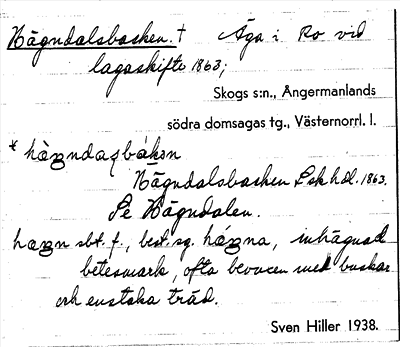 Hägndalsbacken. † Äga i Ro vid
lagaskifte 1863;
Skogs s:n., Ångermanlands
södra domsagas tg., Västernorrl. l.
* hàgndaɋbákən
Hägndalsbacken Lskhdl. 1863.
Se Hägndalen.
hægn sbt. f., best. sg. hǽgna, inhägnad
betesmark, ofta bevuxen med buskar
och enstaka träd.
Sven Hiller 1938.